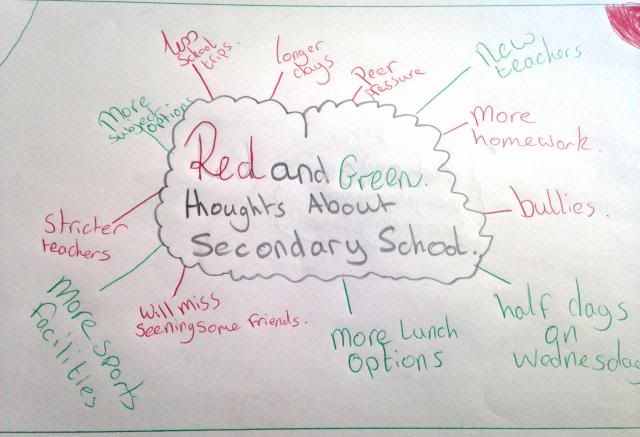 Red and Green.
thoughts About
Secondary School.
less
School
trips.
longer
days
Peer
pressure
New
teachers
More
homework.
bullies.
half days
on
Wednesday
More Lunch
Options
Will miss
Seening some friends.
More Sports
Facilities
Stricter
teachers
More
subject
options